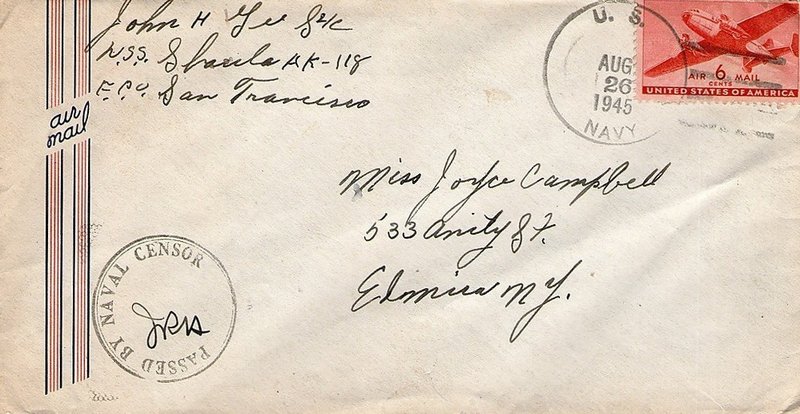 John H Gee S2/c
USS. Shaula AK-118
F.P.O. San Francisco
air
mail
U. S.
AUG
26
1945
NAVY
AIR 6 MAIL
CENTS
UNITED STATES OF AMERICA
Miss Joyce Campbell
533 Amity St.
Elmira N.Y.
PASSED BY NAVAL CENSOR
JRH